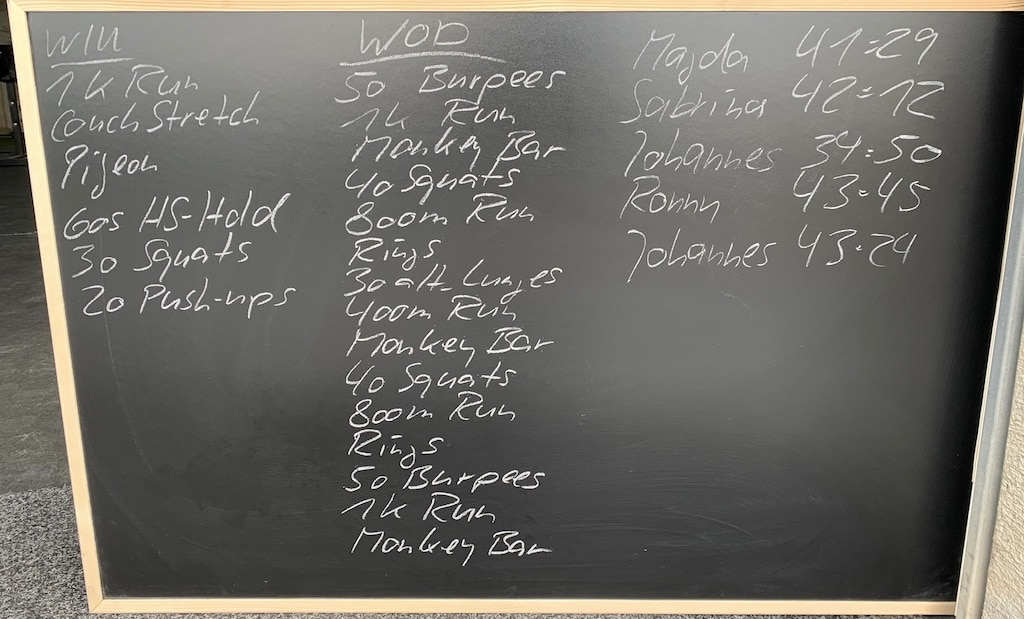 WIU
1k Run
Couch Stretch
Pigeon
60s HS-Hold
30 Squats
20 Push-ups
WOD
50 Burpees
1k Run
Monkey Bar
40 Squats
800m Run
Rings
30 alt. Lunges
400m Run
Monkey Bar
40 Squats
800m Run
Rings
50 Burpees
1k Run
Monkey Bar
Magda 41:29
Sabrina 42:12
Johannes 34:50
Ronny 43:45
Johannes 43:24